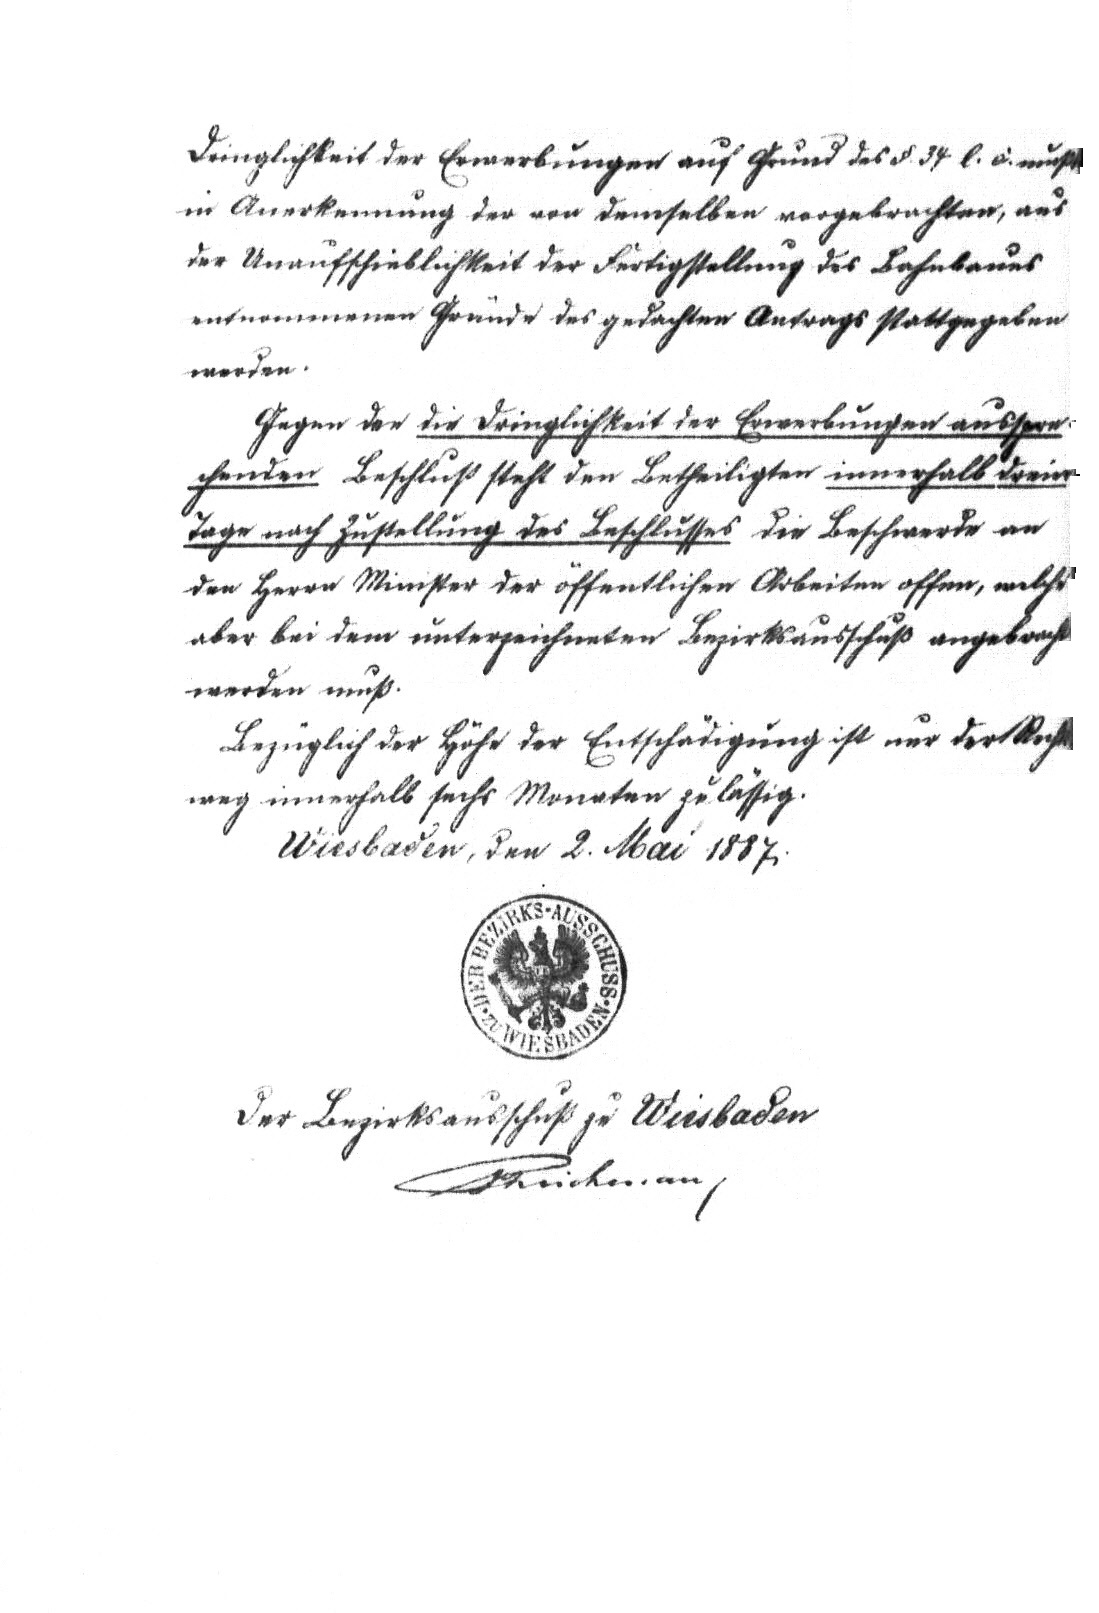 Dringlichkeit der Erwerbungen auf Grund des §. 34 l. c. mußte
in Anerkennung der von demselben vorgebrachten, aus
der Unaufschieblichkeit der Fertigstellung des Bahnbaues
entnommenen Gründe des gedachten Antrags stattgegeben
werden.
Gegen den die Dringlichkeit der Erwerbungen ausspre-
chenden Beschluß steht den Betheiligten innerhalb dreier
Tage nach Zustellung des Beschlusses die Beschwerde an
den Herrn Minister der öffentlichen Arbeiten offen, welche
aber bei dem unterzeichneten Bezirksausschuß angebracht
werden muß.
Bezüglich der Höhe der Entschädigung ist nur der Rechts
weg innerhalb sechs Monaten zulässig.
Wiesbaden, den 2. Mai 1887.
DER BEZIRKS-AUSSCHUSS
ZU WIESBADEN
Der Bezirksausschuß zu Wiesbaden